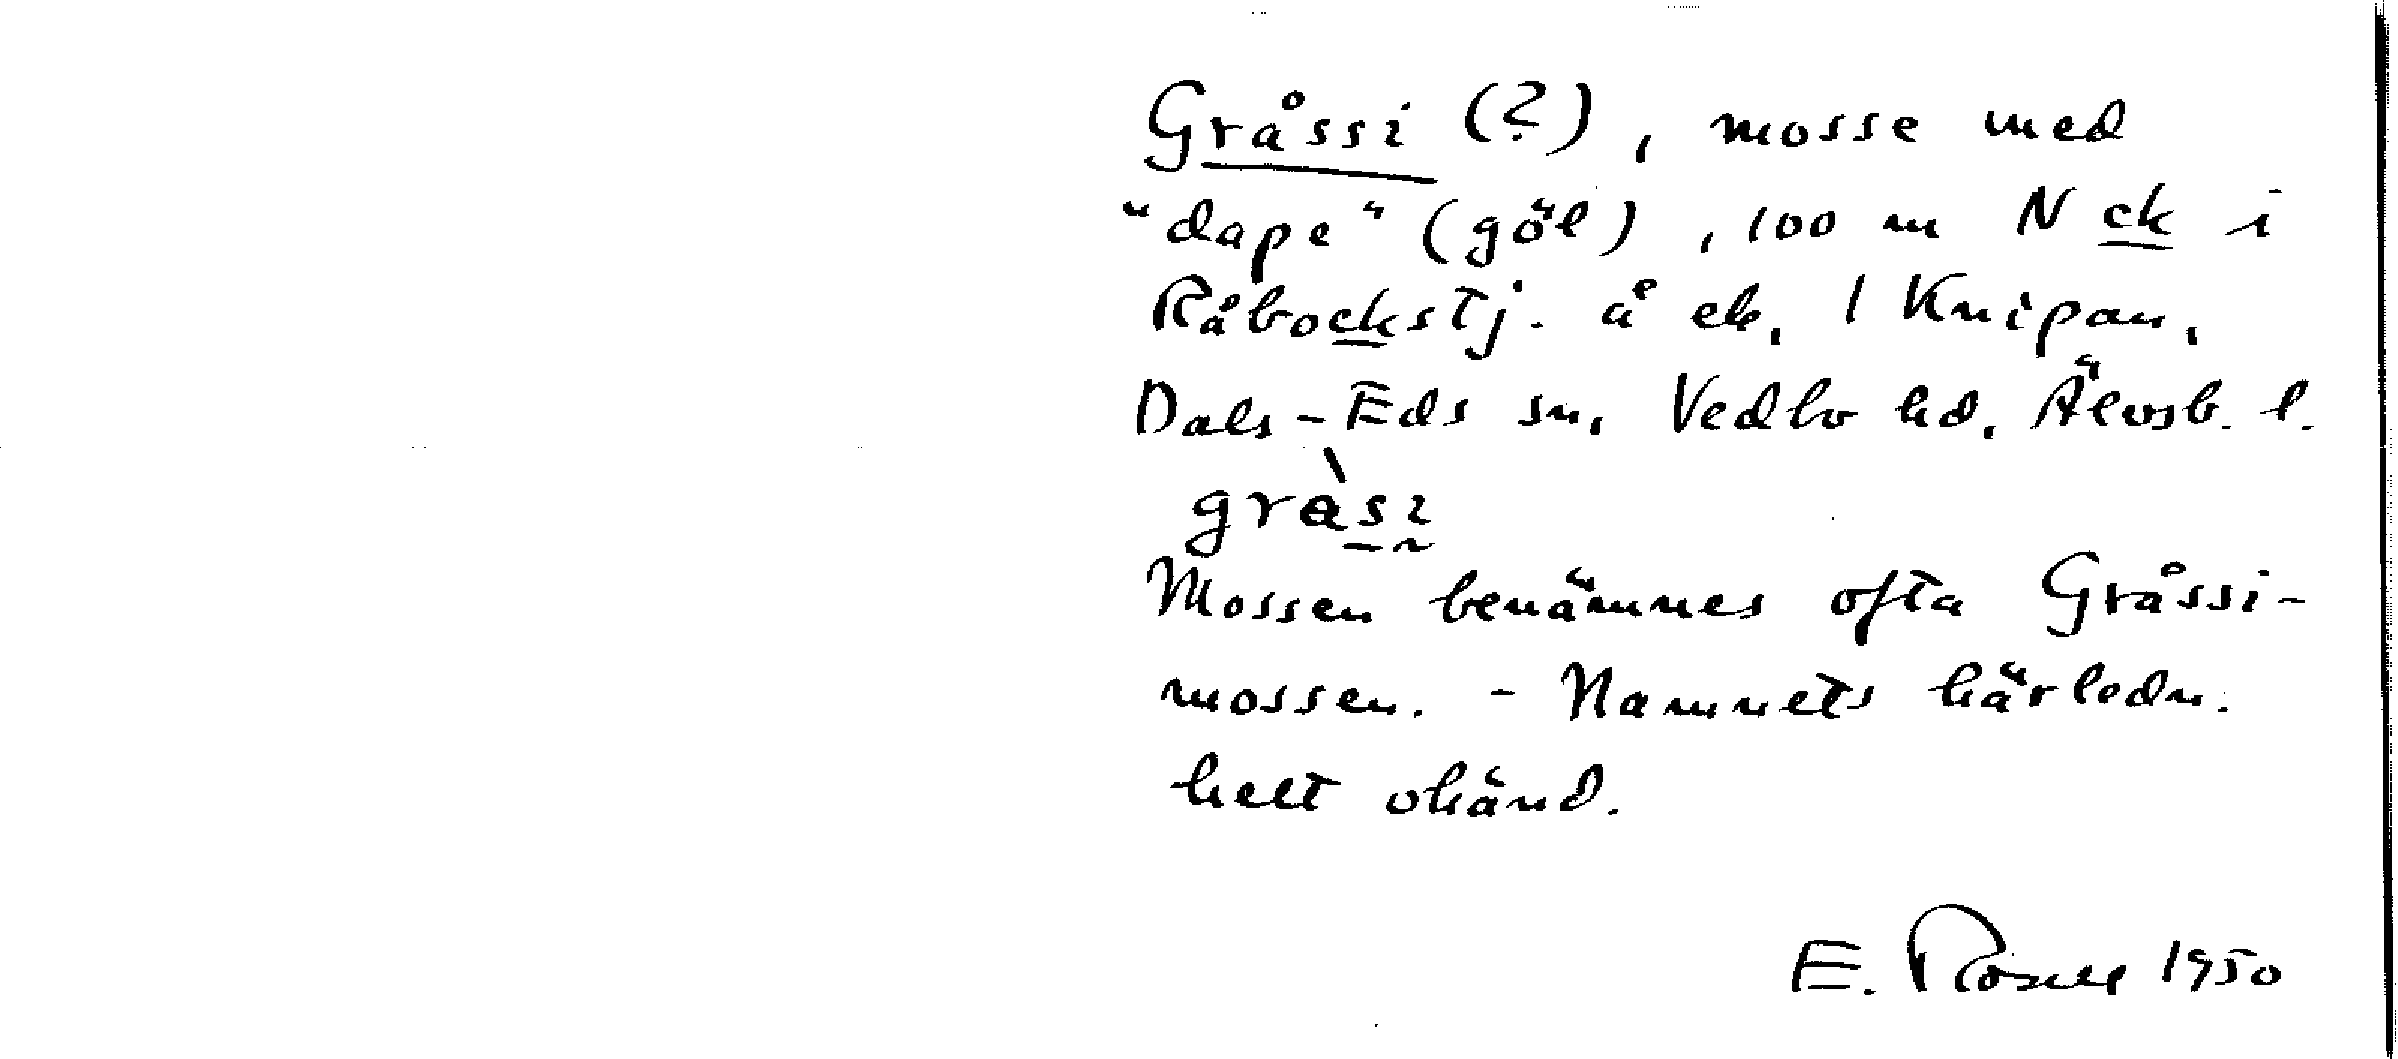 Gråssi (?), mosse med
"dape" (göl), 100 m N ck i
Råbockstj. å ek. 1 Knipan,
Dals-Eds sn, Vedbo hd, Älvsb. l.
gràsı
Mossen benämnes ofta Gråssi-
mossen. - Namnets härledn.
helt okänd.
E. 1950